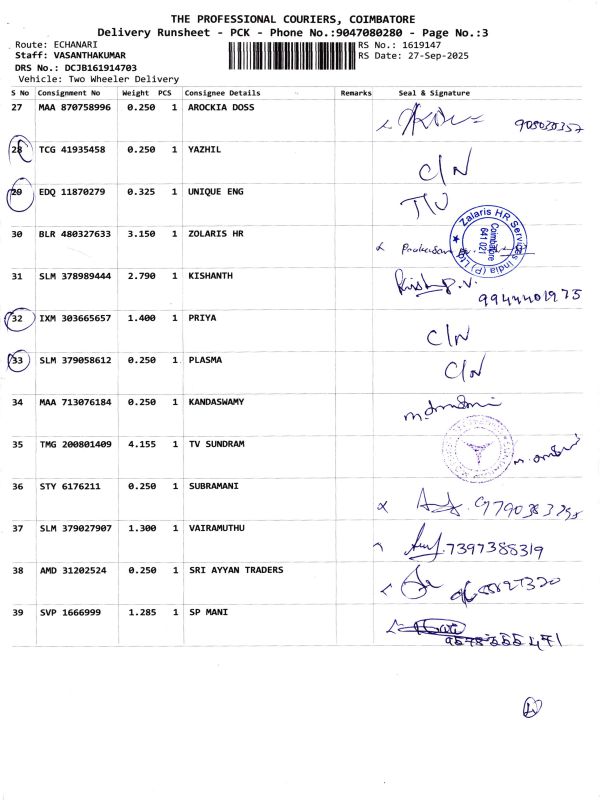 THE PROFESSIONAL COURIERS, COIMBATORE
Delivery Runsheet - PCK - Phone No.:9047080280 - Page No.:3
Route: ECHANARI RS No.: 1619147
Staff: VASANTHAKUMAR RS Date: 27-Sep-2025
DRS No.: DCJB161914703
Vehicle: Two Wheeler Delivery
S No Consignment No Weight PCS Consignee Details Remarks Seal & Signature
27 MAA 870758996 0.250 1 AROCKIA DOSS
28 TCG 41935458 0.250 1 YAZHIL C/N
29 EDQ 11870279 0.325 1 UNIQUE ENG
30 BLR 480327633 3.150 1 ZOLARIS HR Zalaris HR Services India (P) Ltd. Coimbatore 641 021
31 SLM 378989444 2.790 1 KISHANTH 9944401975
32 IXM 303665657 1.400 1 PRIYA C/N
33 SLM 379058612 0.250 1 PLASMA C/N
34 MAA 713076184 0.250 1 KANDASWAMY
35 TMG 200801409 4.155 1 TV SUNDRAM
36 STY 6176211 0.250 1 SUBRAMANI
37 SLM 379027907 1.300 1 VAIRAMUTHU 7397385319
38 AMD 31202524 0.250 1 SRI AYYAN TRADERS
39 SVP 1666999 1.285 1 SP MANI